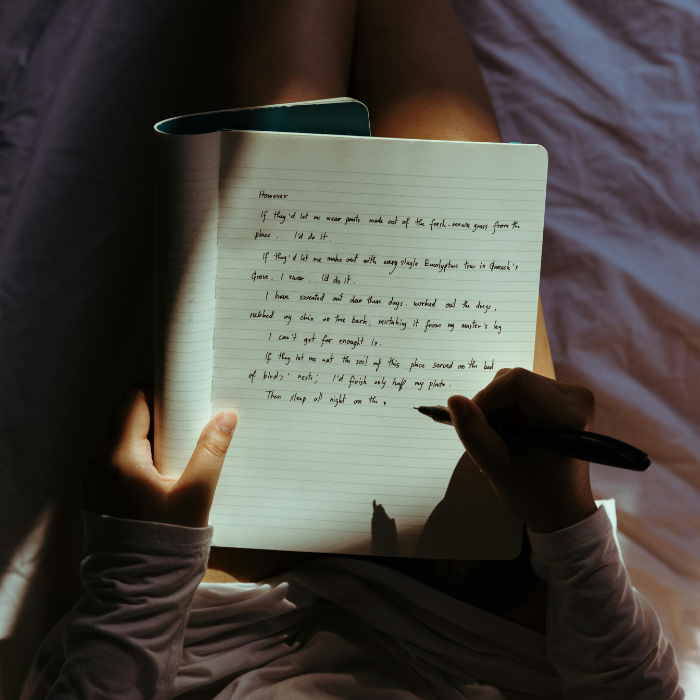 However
If they'd let me wear pants made out of the fresh-mown grass from the
place. I'd do it.
If they'd let me make out with every single Eucalyptus tree in Grouch's
Grove. I swear. I'd do it.
I have sweated out dew these days, worked out the dregs,
rubbed my chin on tree bark, mistaking it from my master's leg
I can't get far enought in.
If they let me eat the soil of this place served on the bed
of bird's' nests; I'd finish only half my plate.
Then sleep all night on the